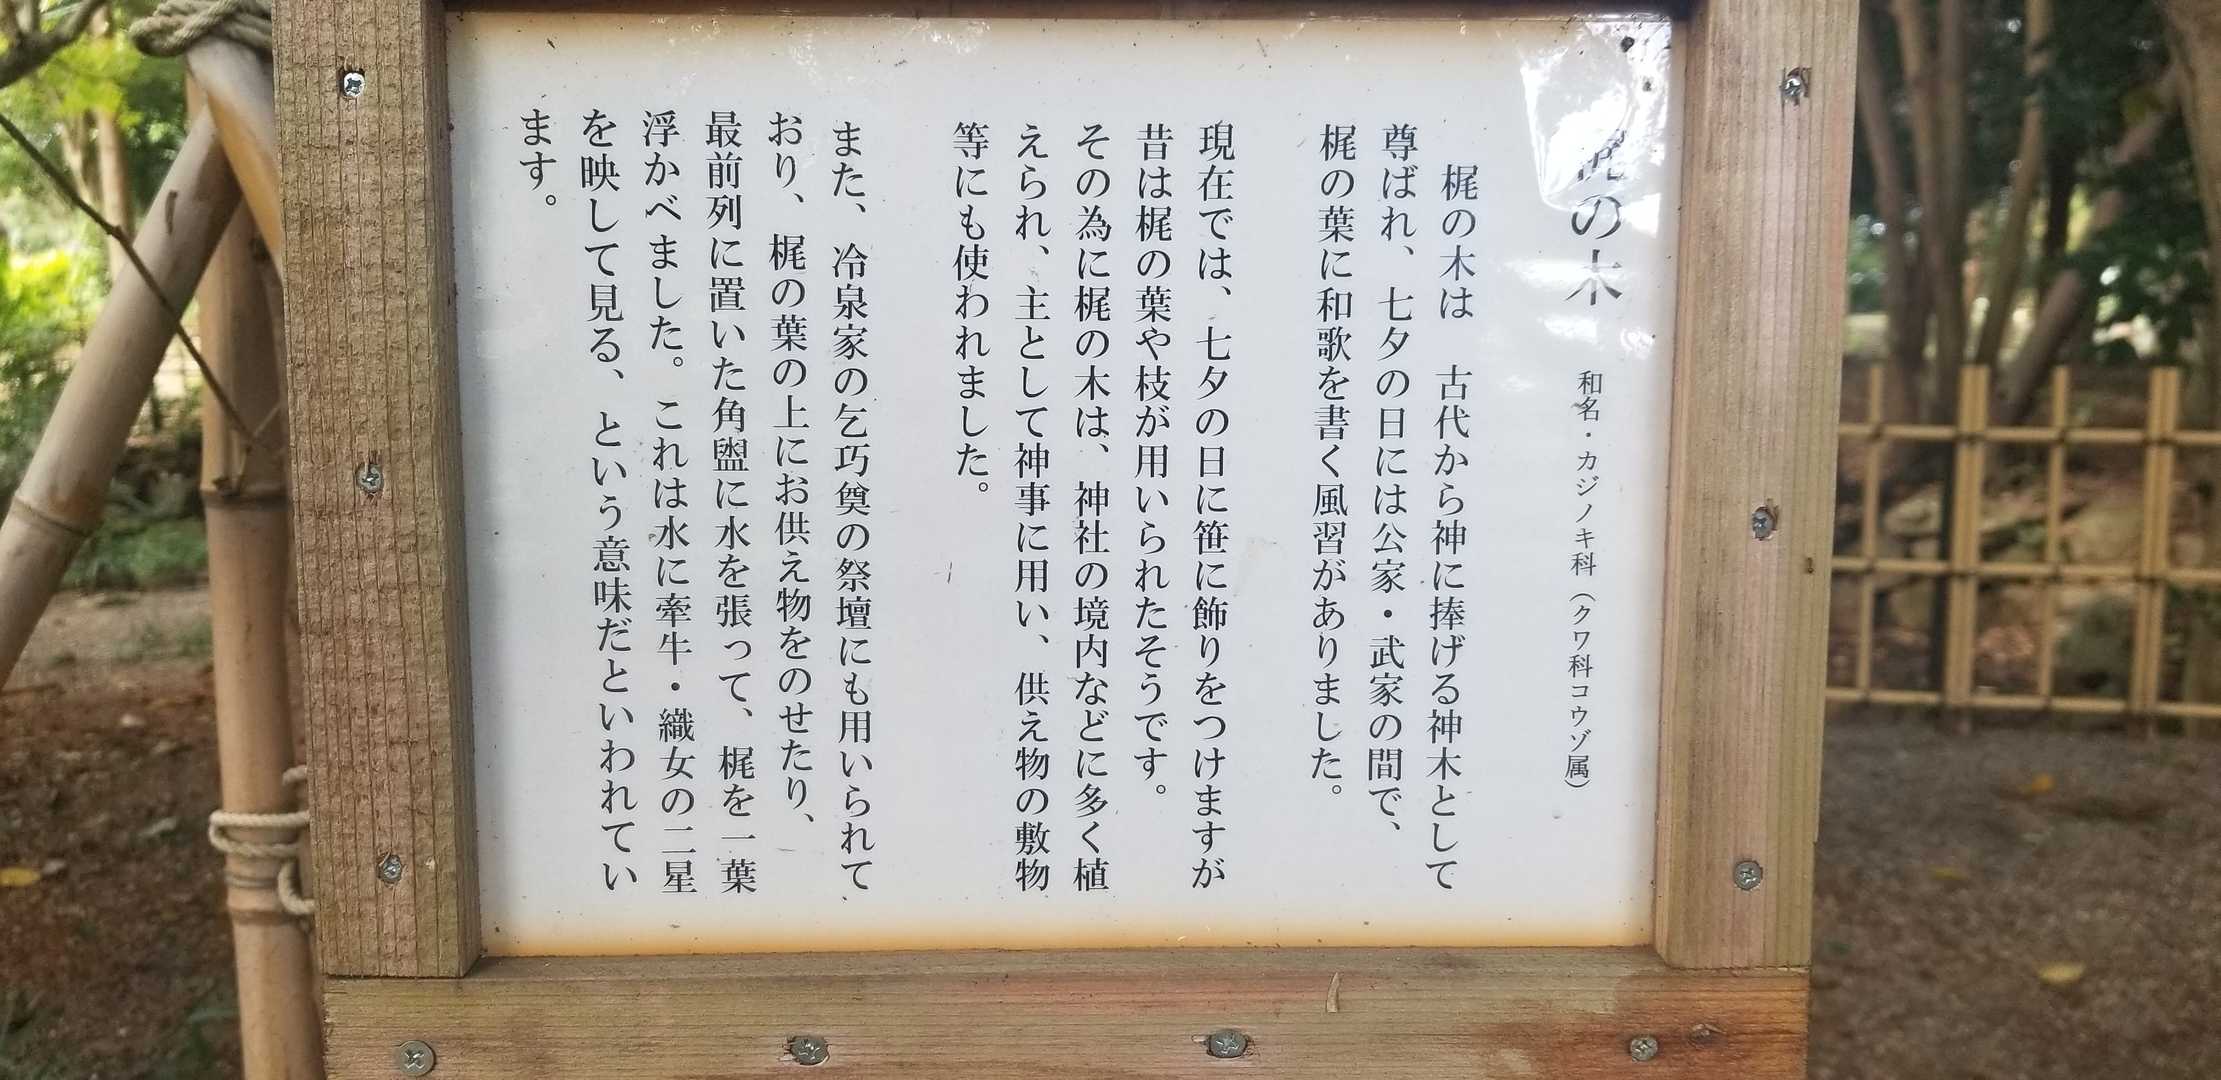 梶の木 和名・カジノキ科(クワ科コウゾ属)
梶の木は 古代から神に捧げる神木として
尊ばれ、七夕の日には公家・武家の間で、
梶の葉に和歌を書く風習がありました。
現在では、七夕の日に笹に飾りをつけますが
昔は梶の葉や枝が用いられたそうです。
その為に梶の木は、神社の境内などに多く植
えられ、主として神事に用い、供え物の敷物
等にも使われました。
また、冷泉家の乞巧奠の祭壇にも用いられて
おり、梶の葉の上にお供え物をのせたり、
最前列に置いた角盥に水を張って、梶を一葉
浮かべました。これは水に牽牛・織女の二星
を映して見る、という意味だといわれてい
ます。